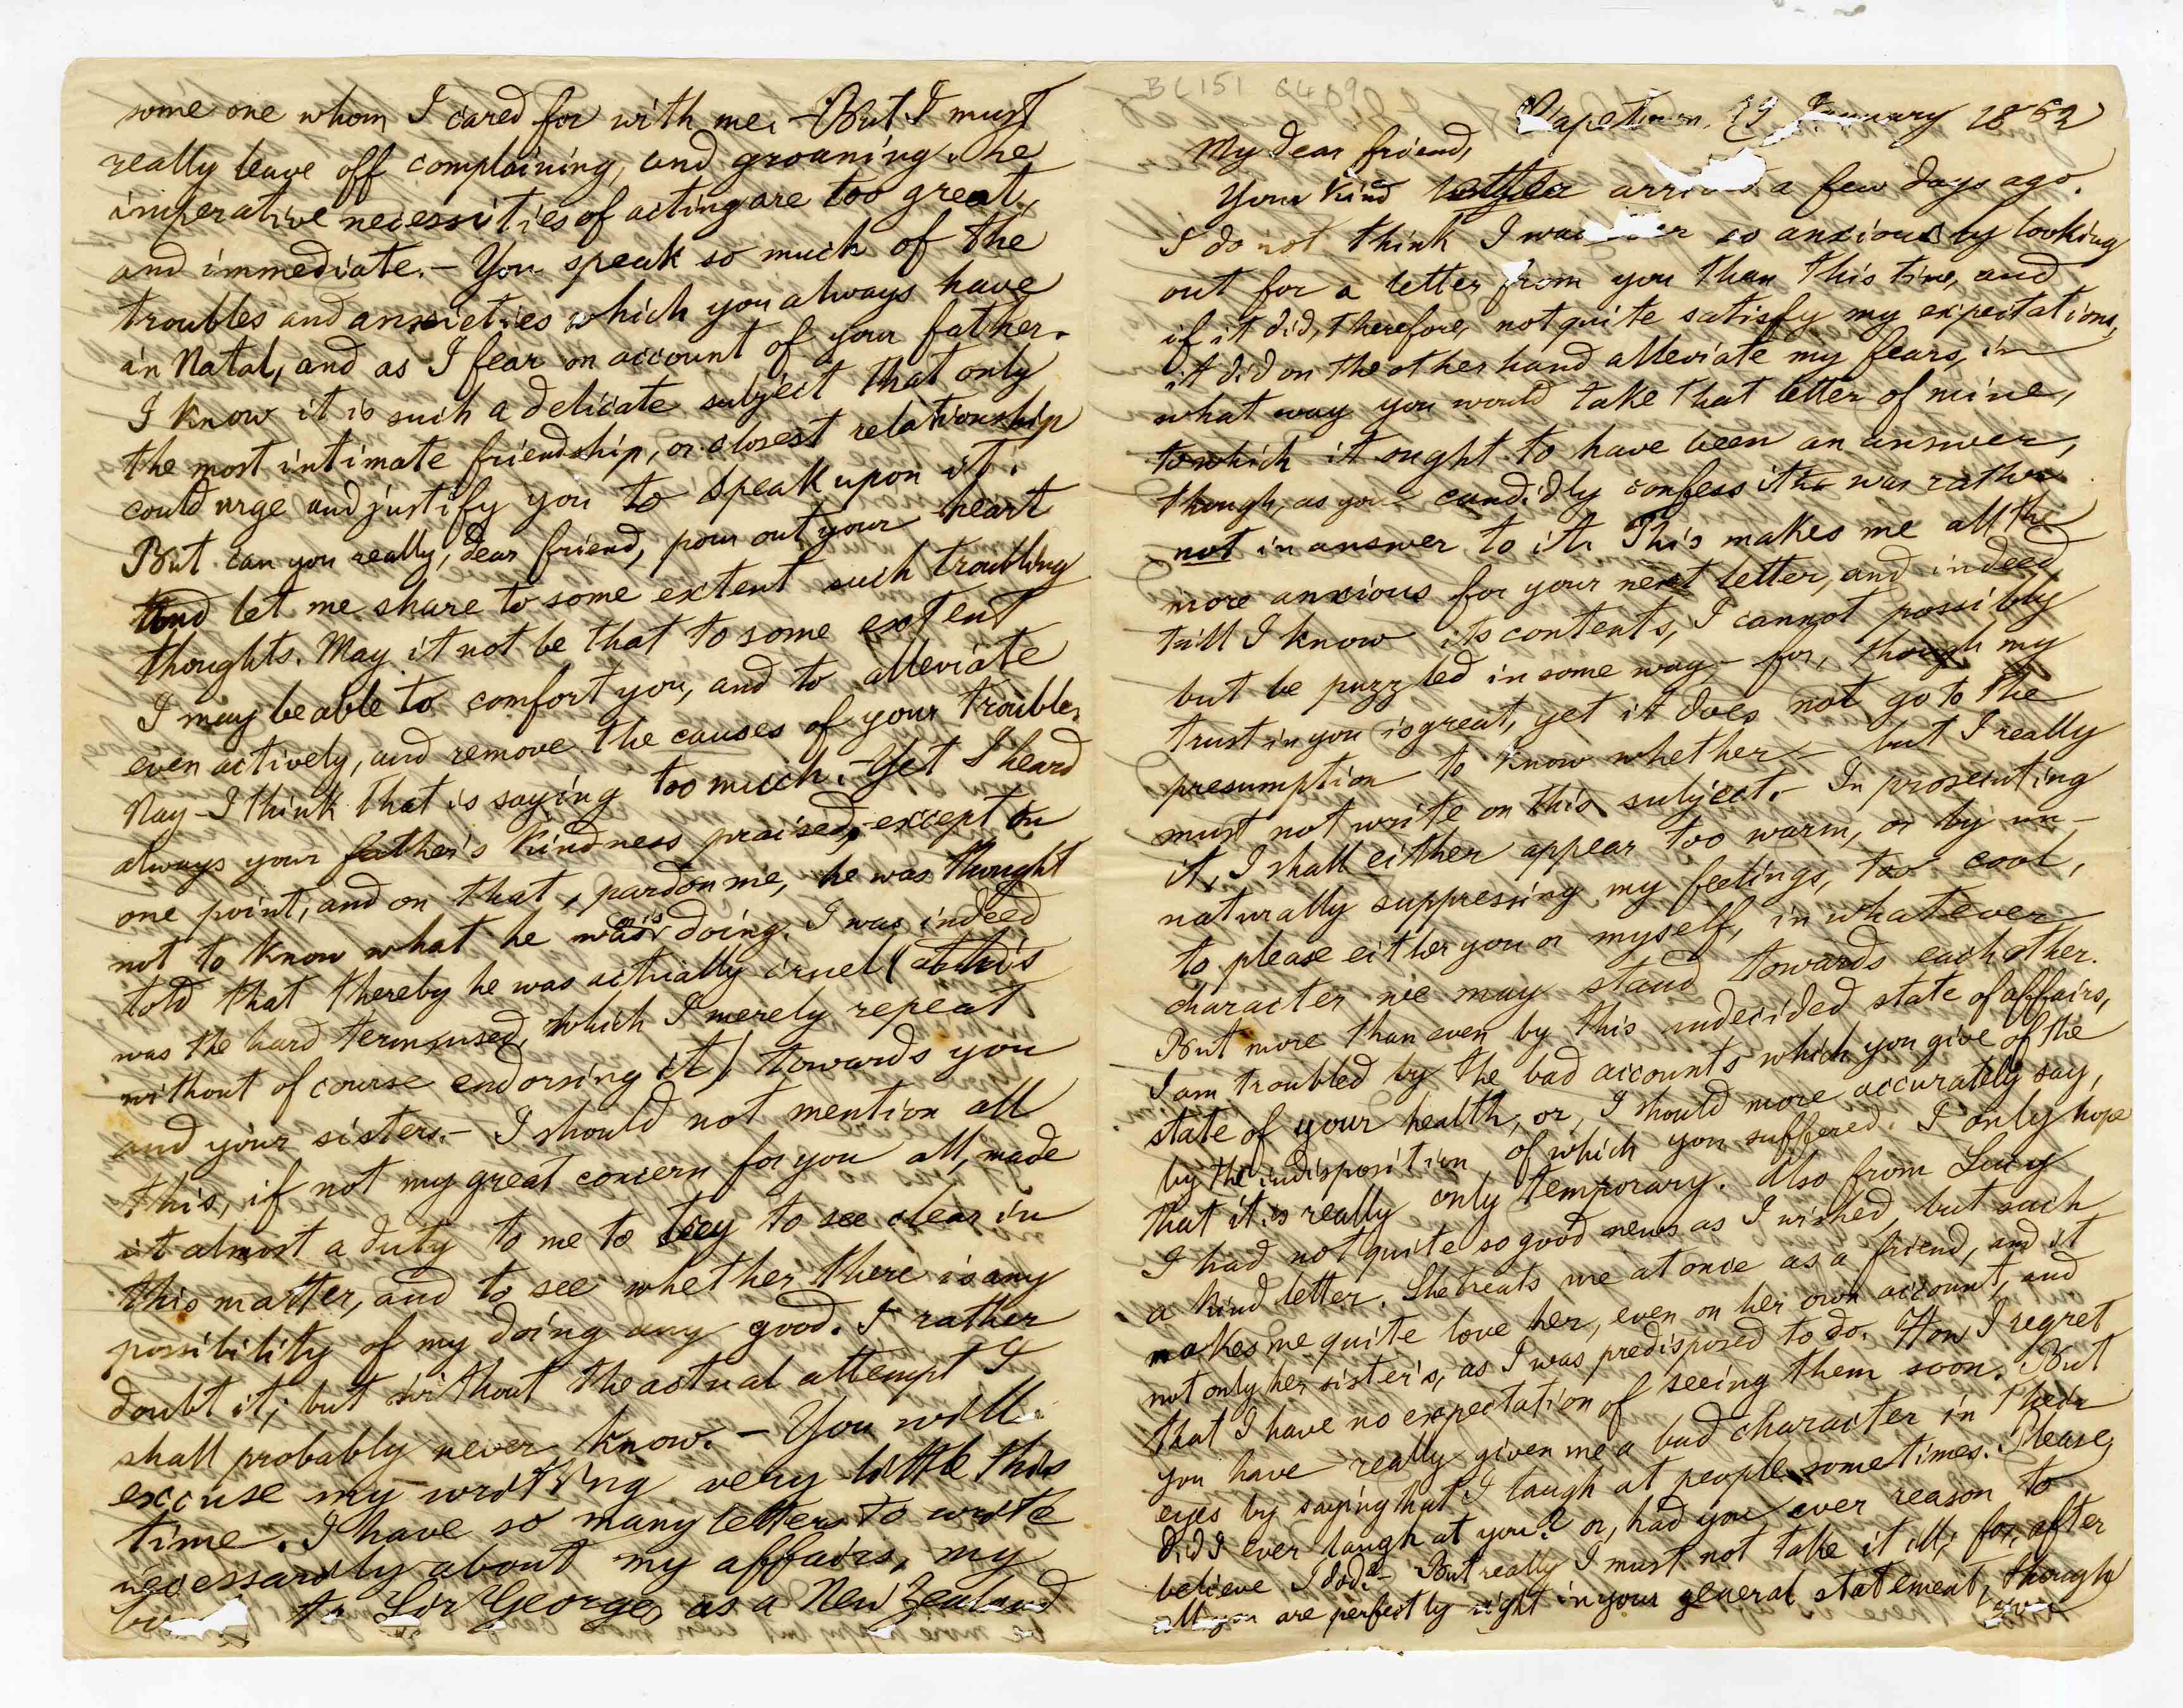 BC151 C4
Capetown, 29 January 1862
My dear friend,
Your kind letter arrived a few days ago.
I do not think I was ever so anxious by looking
out for a letter from you than this time, and
if it did, therefore, not quite satisfy my expectations,
it did on the other hand alleviate my fears, in
what way you would take that letter of mine,
to which it ought to have been an answer,
though, as you candidly confess it was rather
not in answer to it. This makes me all the
more anxious for your next letter, and indeed
till I know its contents, I cannot possibly
but be puzzled in some way – for, though my
trust in you is great, yet it does not go to the
presumption to know whether – but I really
must not write on this subject. – In prosecuting
it, I shall either appear too warm, or by un-
naturally suppressing my feelings, too cool,
to please either you or myself, in whatever
character we may stand towards each other.
But more than even by this undecided state of affairs,
I am troubled by the bad accounts which you give of the
state of your health, or, I should more accurately say,
by the indisposition, of which you suffered. I only hope
that it is really only temporary. Also from Lucy
I had not quite so good news as I wished, but such
a kind letter. She treats me at once as a friend, and it
makes me quite love her, even on her own account, and
not only her sister's, as I was predisposed to do. How I regret
that I have no expectation of seeing them soon. But
you have really given me a bad character in their
eyes by saying that I laugh at people sometimes. Please,
did I ever laugh at you? or, had you ever reason to
believe I did? – But really I must not take it ill; for, after
all you are perfectly right in your general statement, though
some one whom I cared for with me. – But I must
really leave off complaining, and groaning. The
imperative necessities of acting are too great,
and immediate. – You speak so much of the
troubles and anxieties which you always have
in Natal, and as I fear on account of your father.
I know it is such a delicate subject that only
the most intimate friendship, or closest relationship
could urge and justify you to speak upon it.
But can you really, dear friend, pour out your heart
and let me share to some extent such troubling
thoughts. May it not be that to some extent
I may be able to comfort you, and to alleviate
even actively, and remove the causes of your troubles.
Nay – I think that is saying too much. – Yet I heard
always your father's kindness praised, – except on
one point, and on that, pardon me, he was thought
not to know what he was doing. I was indeed
told that thereby he was actually cruel (this
was the hard term used, which I merely repeat
without of course endorsing it) towards you
and your sisters. – I should not mention all
this, if not my great concern for you all, made
it almost a duty to me to try to see clear in
this matter, and to see whether there is any
possibility of my doing any good. I rather
doubt it; but without the actual attempt I
shall probably never know. – You will
excuse my writing very little this
time. I have so many letters to write
necessarily about my affairs, my
to Sir George, as a New Zealand